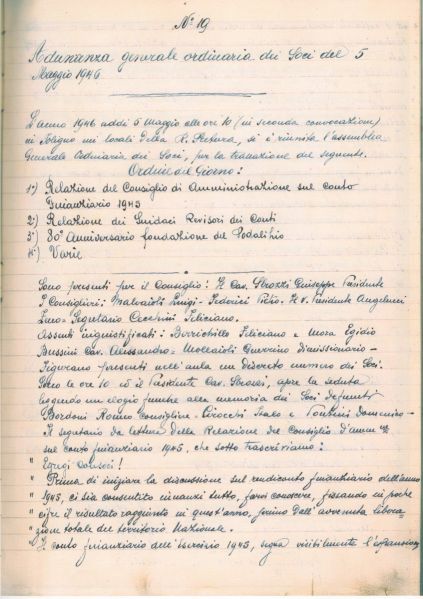 Nº 19
Adunanza generale ordinaria dei Soci del 5
Maggio 1946
L'anno 1946 addì 5 Maggio alle ore 10 (in seconda convocazione)
in Foligno nei locali della R. Pretura, si è riunita l'assemblea
Generale Ordinaria dei Soci, per la trattazione del seguente.
Ordine del Giorno:
1º) Relazione del Consiglio di Amministrazione sul conto
finanziario 1945
2º) Relazione dei Sindaci Revisori dei Conti
3º) 80º Anniversario fondazione del Sodalizio
4º) Varie
Sono presenti per il Consiglio: Il Cav. Strozzi Giuseppe Presidente
I Consiglieri: Luigi - Federici Pietro - Il V. Presidente Angelucci
Segretario Cecchini Feliciano.
Assenti ingiustificati: Feliciano e Mora Egidio
Bussini Cav. Alessandro - Guerrino dimissionario -
Figurano presenti nell'aula un discreto numero dei Soci.
Sono le ore 10 ed il Presidente Cav. Strozzi, apre la seduta
leggendo un elogio funebre alla memoria dei Soci defunti
Bordoni Romeo Consigliere - Italo e Domenico -
Il segretario da lettura della Relazione del Consiglio d'amm.
sul conto finanziario 1945, che sotto trascriviamo:
" Egregi consoci!
" Prima di iniziare la discussione sul rendiconto finanziario dell'anno
" 1945, ci sia consentito innanzi tutto, farvi conoscere, fissando in poche
" cifre il risultato raggiunto in quest'anno, primo dall'avvenuta libera-
" zione totale del territorio Nazionale.
" Il conto finanziario dell'Esercizio 1945, segna visibilmente l'espansione